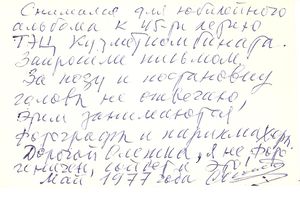 Снимался для юбилейного
альбома к 45-ти летию
ТЭЦ Кузметкомбината.
Запросили письмом,
За позу и постановку
головы не отвечаю,
этим занимаются,
фотографы и парикмахеры.
Дорогой Олежка, я не фото-
гиничен,
Май 1977 года